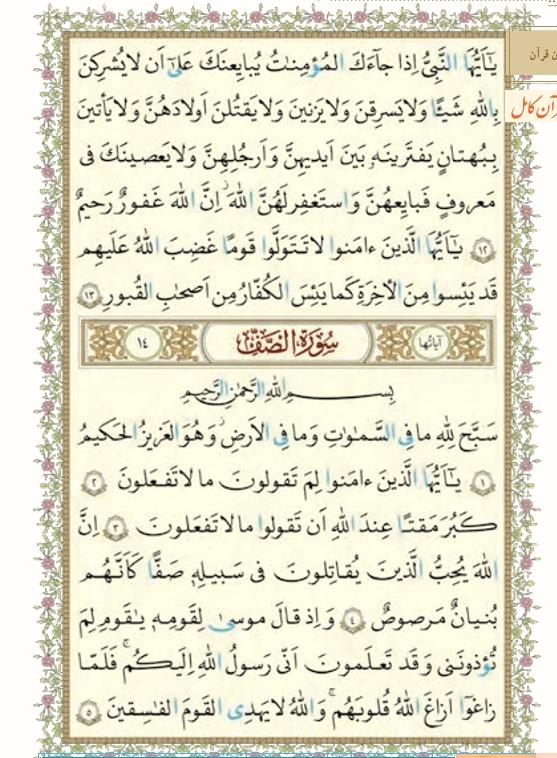 يٰٓاَيُّهَا النَّبِىُّ اِذا جآءَكَ المُؤمِنٰتُ يُبايِعنَكَ عَلىٰٓ اَن لايُشرِكنَ
بِاللّٰهِ شَيئًا وَلايَسرِقنَ وَلايَزنينَ وَلايَقتُلنَ اَولادَهُنَّ وَلايَأتينَ
بِبُهتانٍ يَفتَرينَهٗ بَينَ اَيديهِنَّ وَاَرجُلِهِنَّ وَلايَعصينَكَ فى
مَعروفٍ فَبايِعهُنَّ وَاستَغفِر لَهُنَّ اللّٰهَ ۖ اِنَّ اللّٰهَ غَفورٌ رَحيمٌ
﴿١٢﴾ يٰٓاَيُّهَا الَّذينَ ءامَنوا لاتَتَوَلَّوا قَومًا غَضِبَ اللّٰهُ عَلَيهِم
قَد يَئِسوا مِنَ الأٰخِرَةِ كَما يَئِسَ الكُفّارُ مِن اَصحٰبِ القُبورِ ﴿١٣﴾
آياتُها سُورَةُ الصَّفِّ ١٤
بِسمِ اللّٰهِ الرَّحمٰنِ الرَّحيمِ
سَبَّحَ لِلّٰهِ ما فِى السَّمٰوٰتِ وَما فِى الاَرضِ ۖ وَهُوَ العَزيزُ الحَكيمُ
﴿١﴾ يٰٓاَيُّهَا الَّذينَ ءامَنوا لِمَ تَقولونَ ما لاتَفعَلونَ ﴿٢﴾
كَبُرَ مَقتًا عِندَ اللّٰهِ اَن تَقولوا ما لاتَفعَلونَ ﴿٣﴾ اِنَّ
اللّٰهَ يُحِبُّ الَّذينَ يُقاتِلونَ فى سَبيلِهٖ صَفًّا كَاَنَّهُم
بُنيانٌ مَرصوصٌ ﴿٤﴾ وَاِذ قالَ موسىٰ لِقَومِهٖ يٰقَومِ لِمَ
تُؤذونَنى وَقَد تَعلَمونَ اَنّى رَسولُ اللّٰهِ اِلَيكُم ۖ فَلَمّا
زاغوٓا اَزاغَ اللّٰهُ قُلوبَهُم ۚ وَاللّٰهُ لايَهدِى القَومَ الفٰسِقينَ ﴿٥﴾